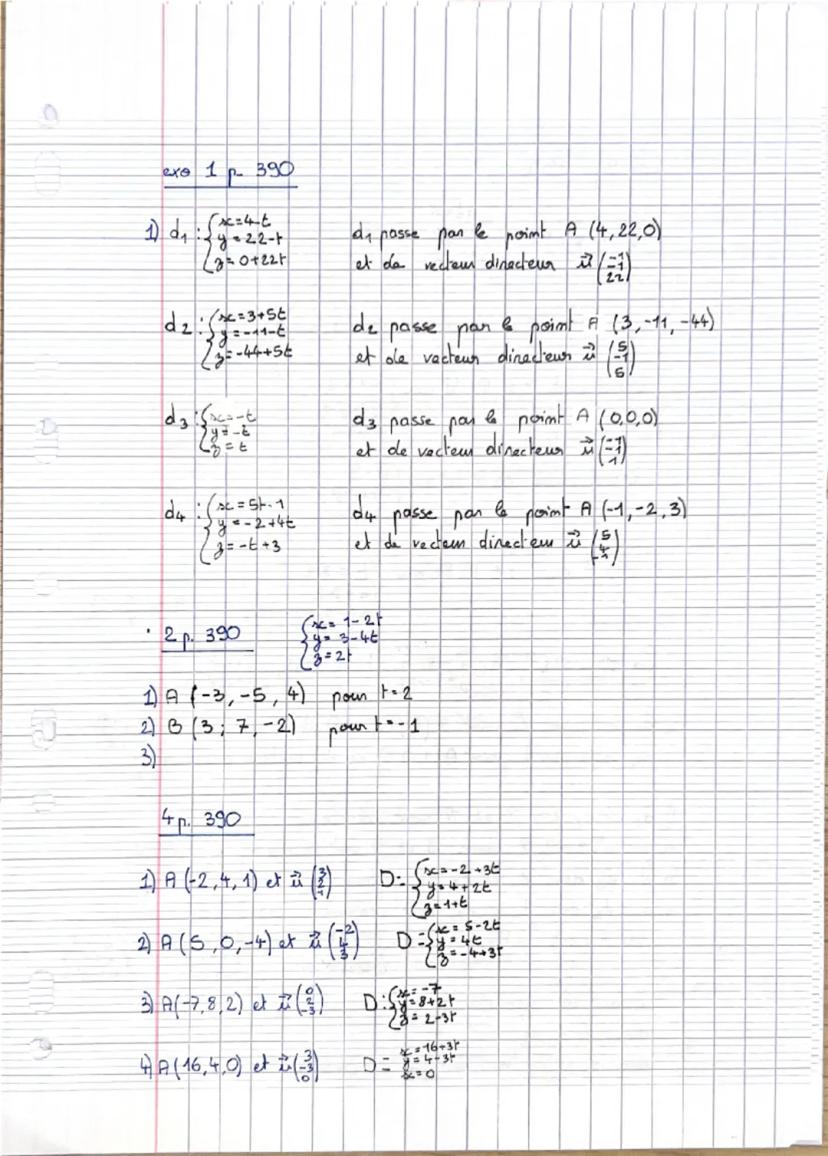 exo 1 p. 390
1) d₁ : { x = 4-t
y = 22-t
z = 0+22t
d₁ passe par le point A (4, 22, 0)
et de vecteur directeur u⃗ (-1 -1 22)
d₂ : { x = 3+5t
y = -11-t
z = -44+5t
d₂ passe par le point A (3, -11, -44)
et de vecteur directeur u⃗ (5 -1 5)
d₃ : { x = -t
y = -t
z = t
d₃ passe par le point A (0,0,0)
et de vecteur directeur u⃗ (-1 -1 1)
d₄ : { x = 5t-1
y = -2+4t
z = -t+3
d₄ passe par le point A (-1, -2, 3)
et de vecteur directeur u⃗ (5 4 -1)
2 p. 390
{ x = 1-2t
y = 3-4t
z = 2t
1) A (-3, -5, 4) pour t = 2
2) B (3; 7, -2) pour t = -1
3)
4 p. 390
1) A (-2, 4, 1) et u⃗ (3 2 1) D: { x = -2+3t
y = 4+2t
z = 1+t
2) A (5, 0, -4) et u⃗ (-2 4 3) D = { x = 5-2t
y = 4t
z = -4+3t
3) A (-7, 8, 2) et u⃗ (0 2 -3) D: { x = -7
y = 8+2t
z = 2-3t
4) A (16, 4, 0) et u⃗ (3 -3 0) D = x = 16+3t
y = 4-3t
= 0